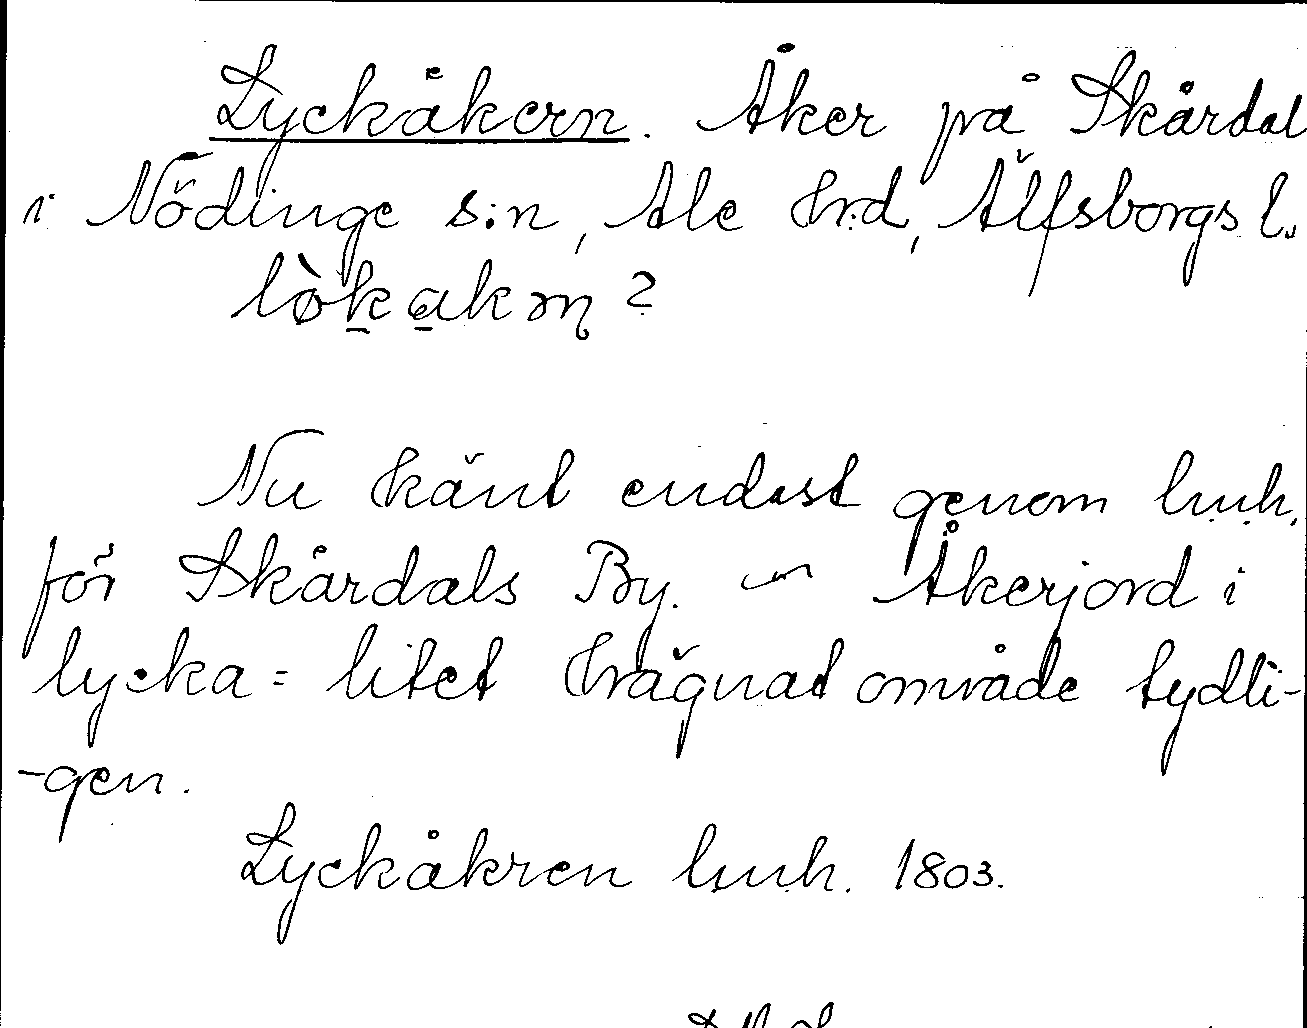 Lyckåkern. Åker på Skårdal
i Nödinge s:n, Ale hrd, Älfsborgs l.
lø̀kakəṇ?
Nu känt endast genom lmh.
för Skårdals By. — Åkerjord i
lycka = litet hägnat område tydli-
-gen.
Lyckåkren lmh. 1803.